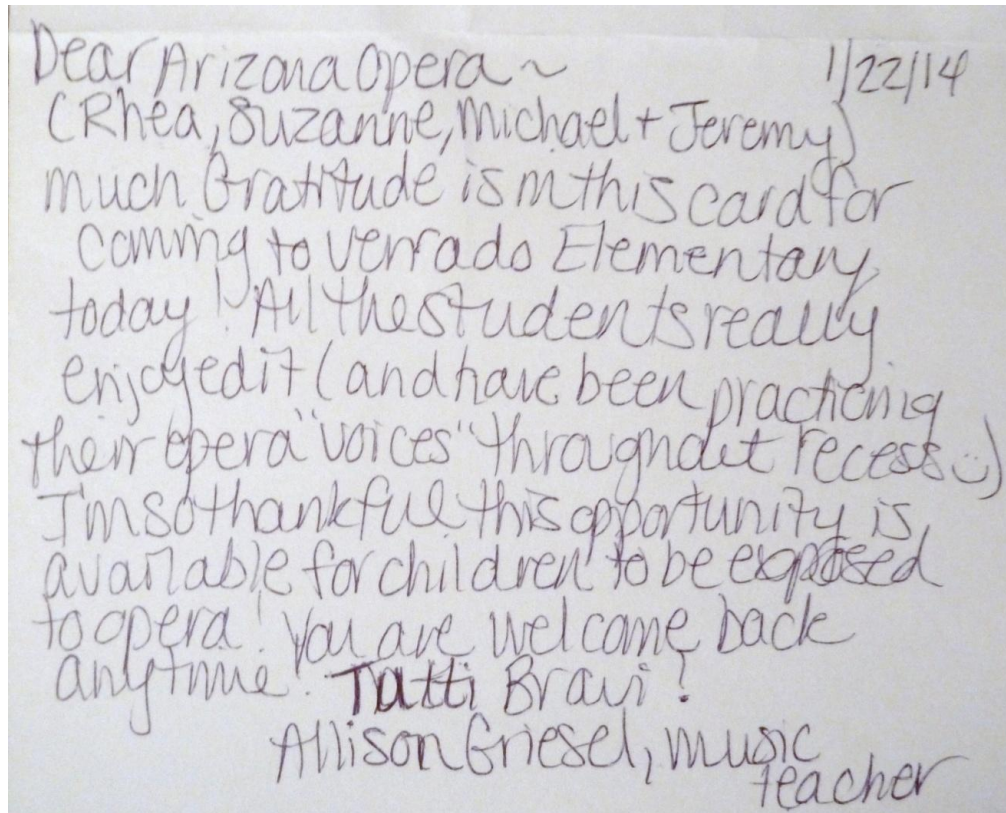 Dear Arizona Opera ~ 1/22/14
(Rhea, Suzanne, Michael + Jeremy)
much Gratitude is in this card for
coming to Verrado Elementary
today! All the students really
enjoyed it (and have been practicing
their opera "voices" throughout recess :)
I'm so thankful this opportunity is
available for children to be exposed
to opera! You are welcome back
anytime! Tutti Bravi!
Allison Griesel, music
teacher